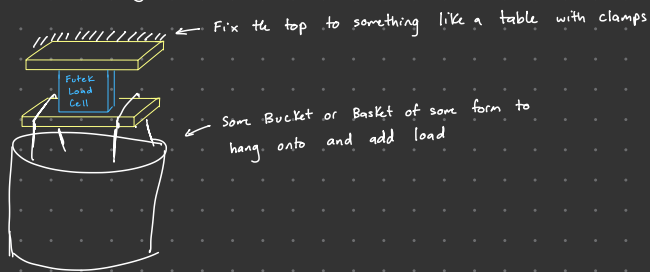 Fix the top to something like a table with clamps
Futek
Load
Cell
Some Bucket or Basket of some form to
hang onto and add load